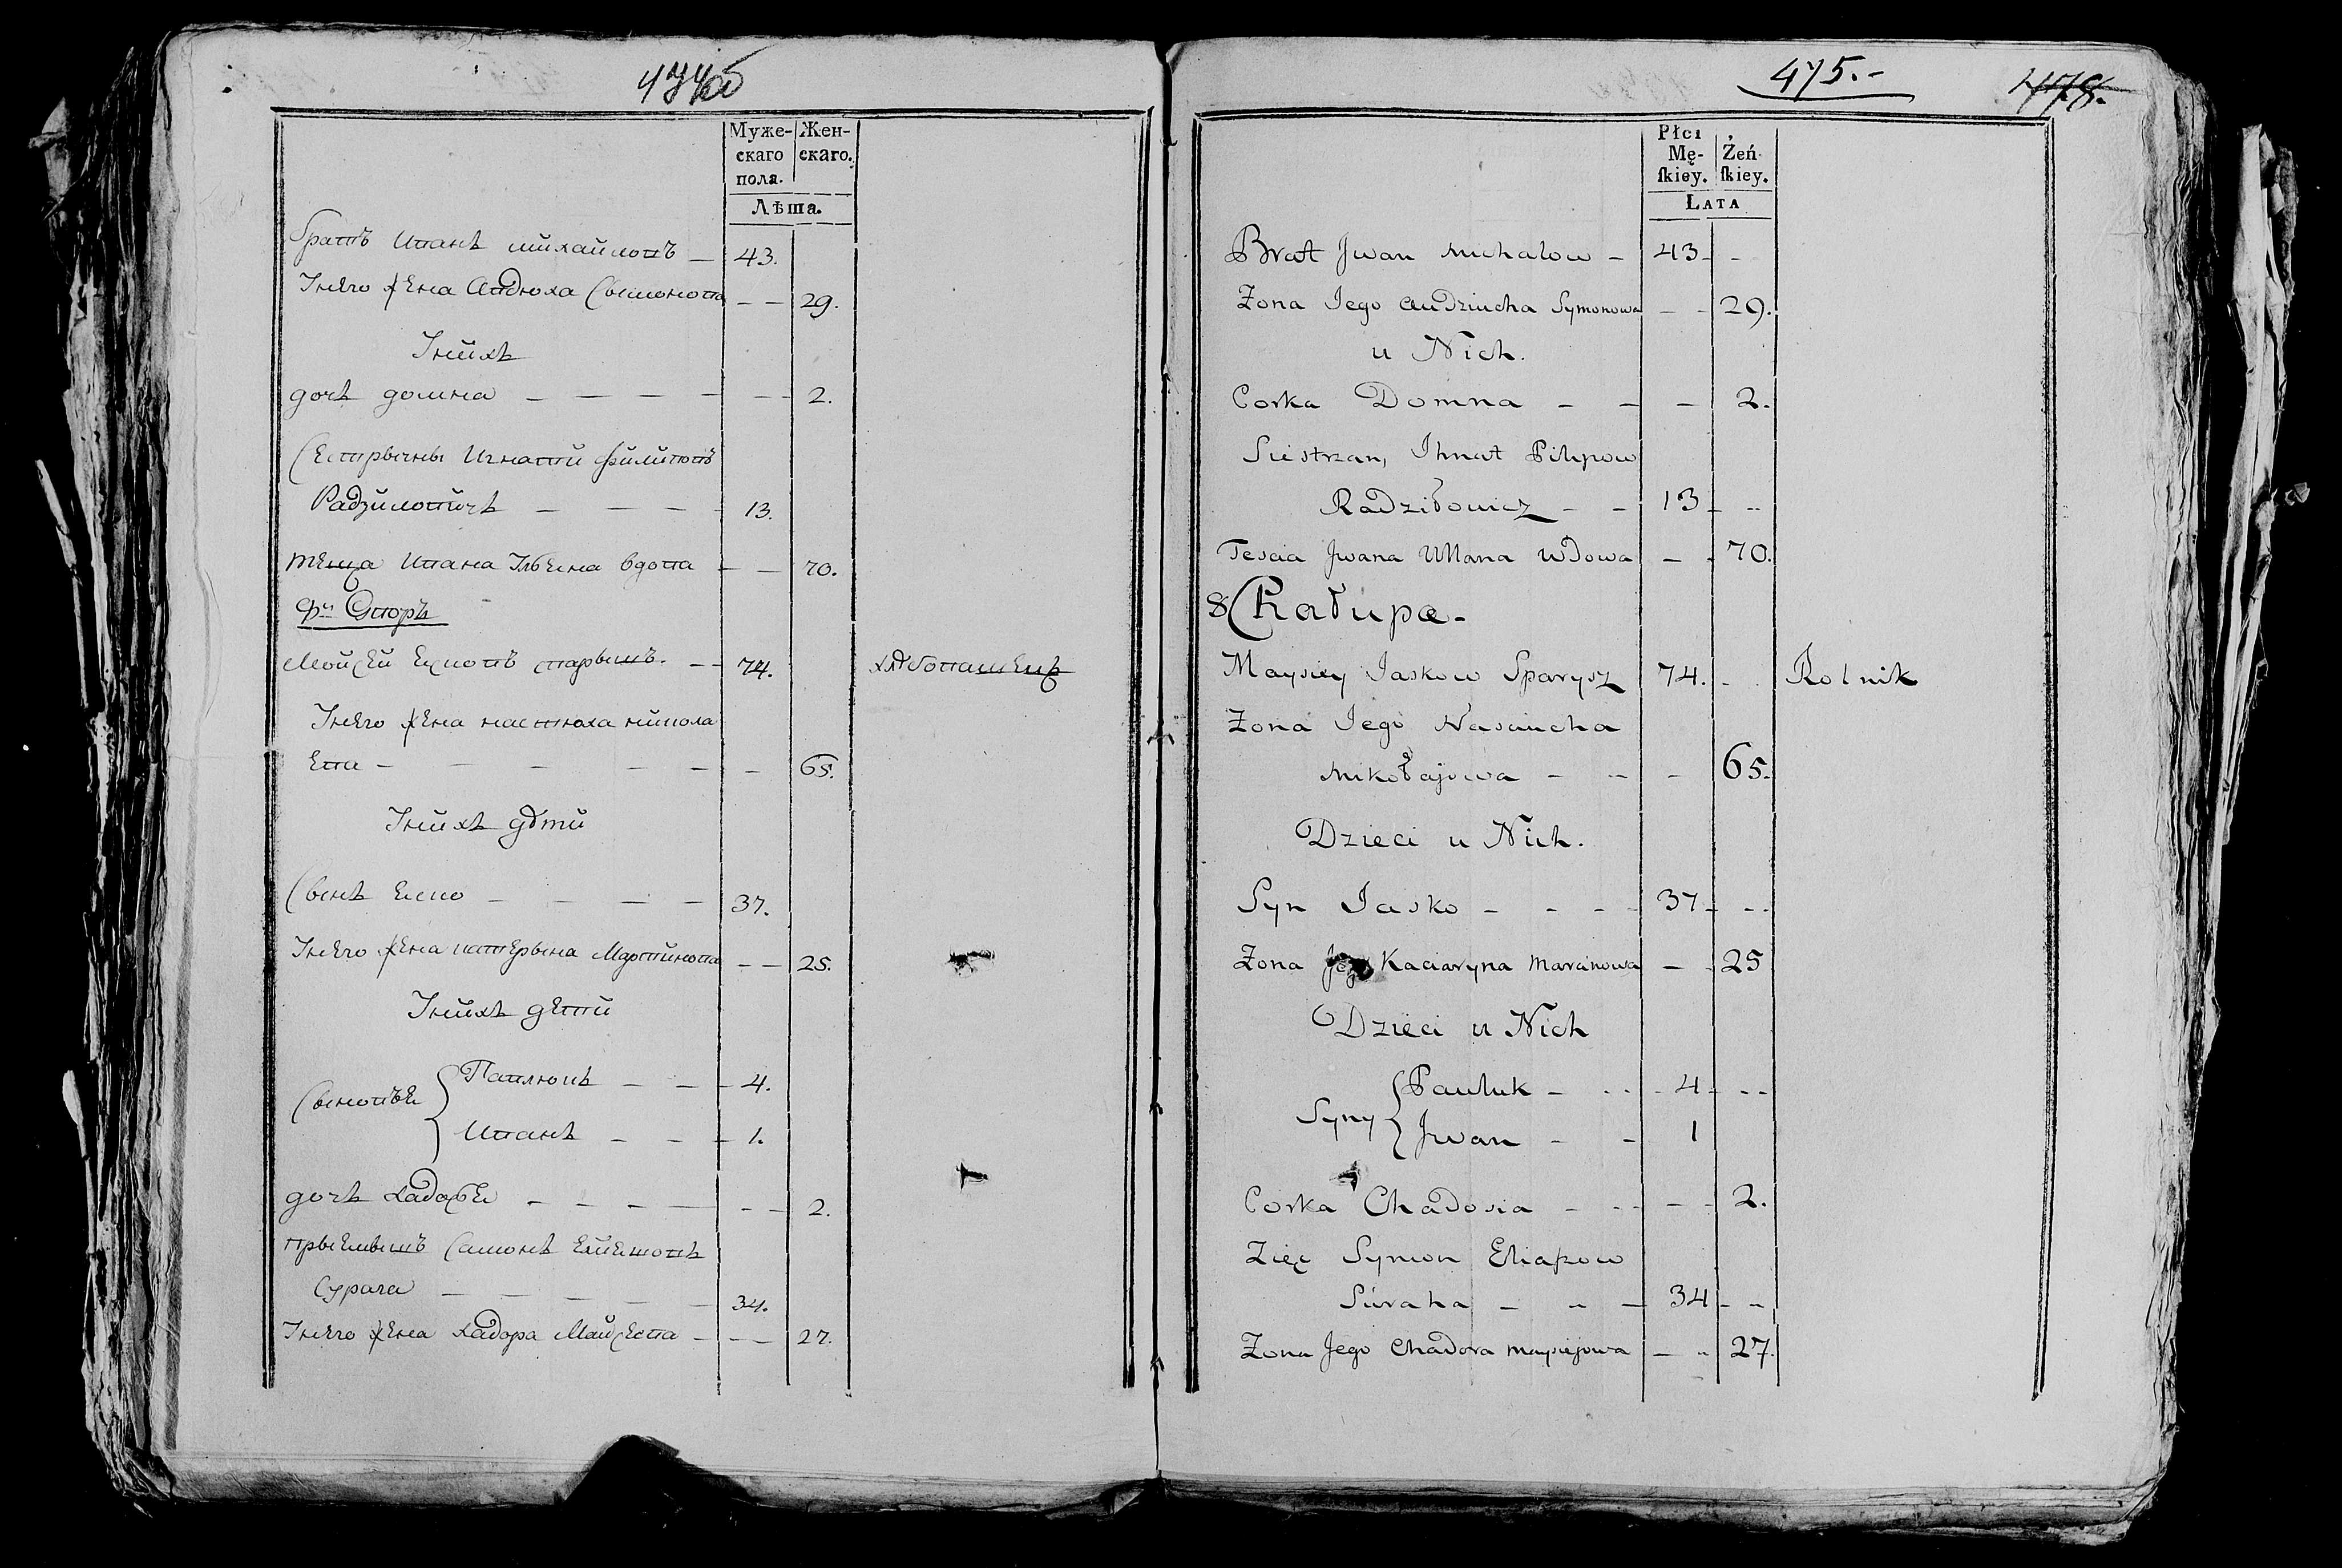 474об
Муже-
скаго
пола.
Жен-
скаго.
Лѣта.
братъ Иванъ михайловъ — 43.
Унего жена Авдюха Сымонова — — 29.
Унихъ
дочь домна — — — — — — 2.
Сестрычны Игнатй филиповъ
Радзиловичъ — — — — 13.
теща Ивана Ульяна вдова — — 70.
Моисей Есковъ старышъ. — — 74. хлѣбопашецъ
Унего жена настюха микола
ева — — — — — — 65.
Унихъ дѣти
Сынъ Еско — — — — 37.
Унего жена катерына Мартинова — — 25.
Унихъ дети
Сыновье { Павлюкъ — — — 4.
Иванъ — — — 1.
дочь хадосье — — — — — — 2.
прыемышъ Самонъ
Сурага — — — — — 34.
Унего жена хадора Майсеева — — — 27.
475.-
478.
Płci
Mę-
ſkiey.
Żeń-
ſkiey.
LATA
Brat Jwan Michałow — 43 - -
Zona Jego Audziucha Symonowa — - 29.
u Nich.
Corka Domna — — — 2.
Siestrzan, Ihnat Pilipow
Radziłowicz — — 13 - --
Tescia Jwana Ullana wdowa — - 70.
8 Chałupa.
Maysiey Jaskow Sparysz 74. - Rolnik
Zona Jego Nasciucha
Mikołajowa — -- - 65.
Dzieci u Nich.
Syn Jasko — - - - 37 - --
Zona Jego Kaciaryna Marcinowa — - 25
Dzieci u Nich
Syny { Pauluk — - - - 4 - --
Jwan — - 1
Corka Chadosia — - - - - 2.
Zięc Symon Eliaszow
Suraha — - — 34 - --
Zona Jego Chadora Maysiejowa — - 27.